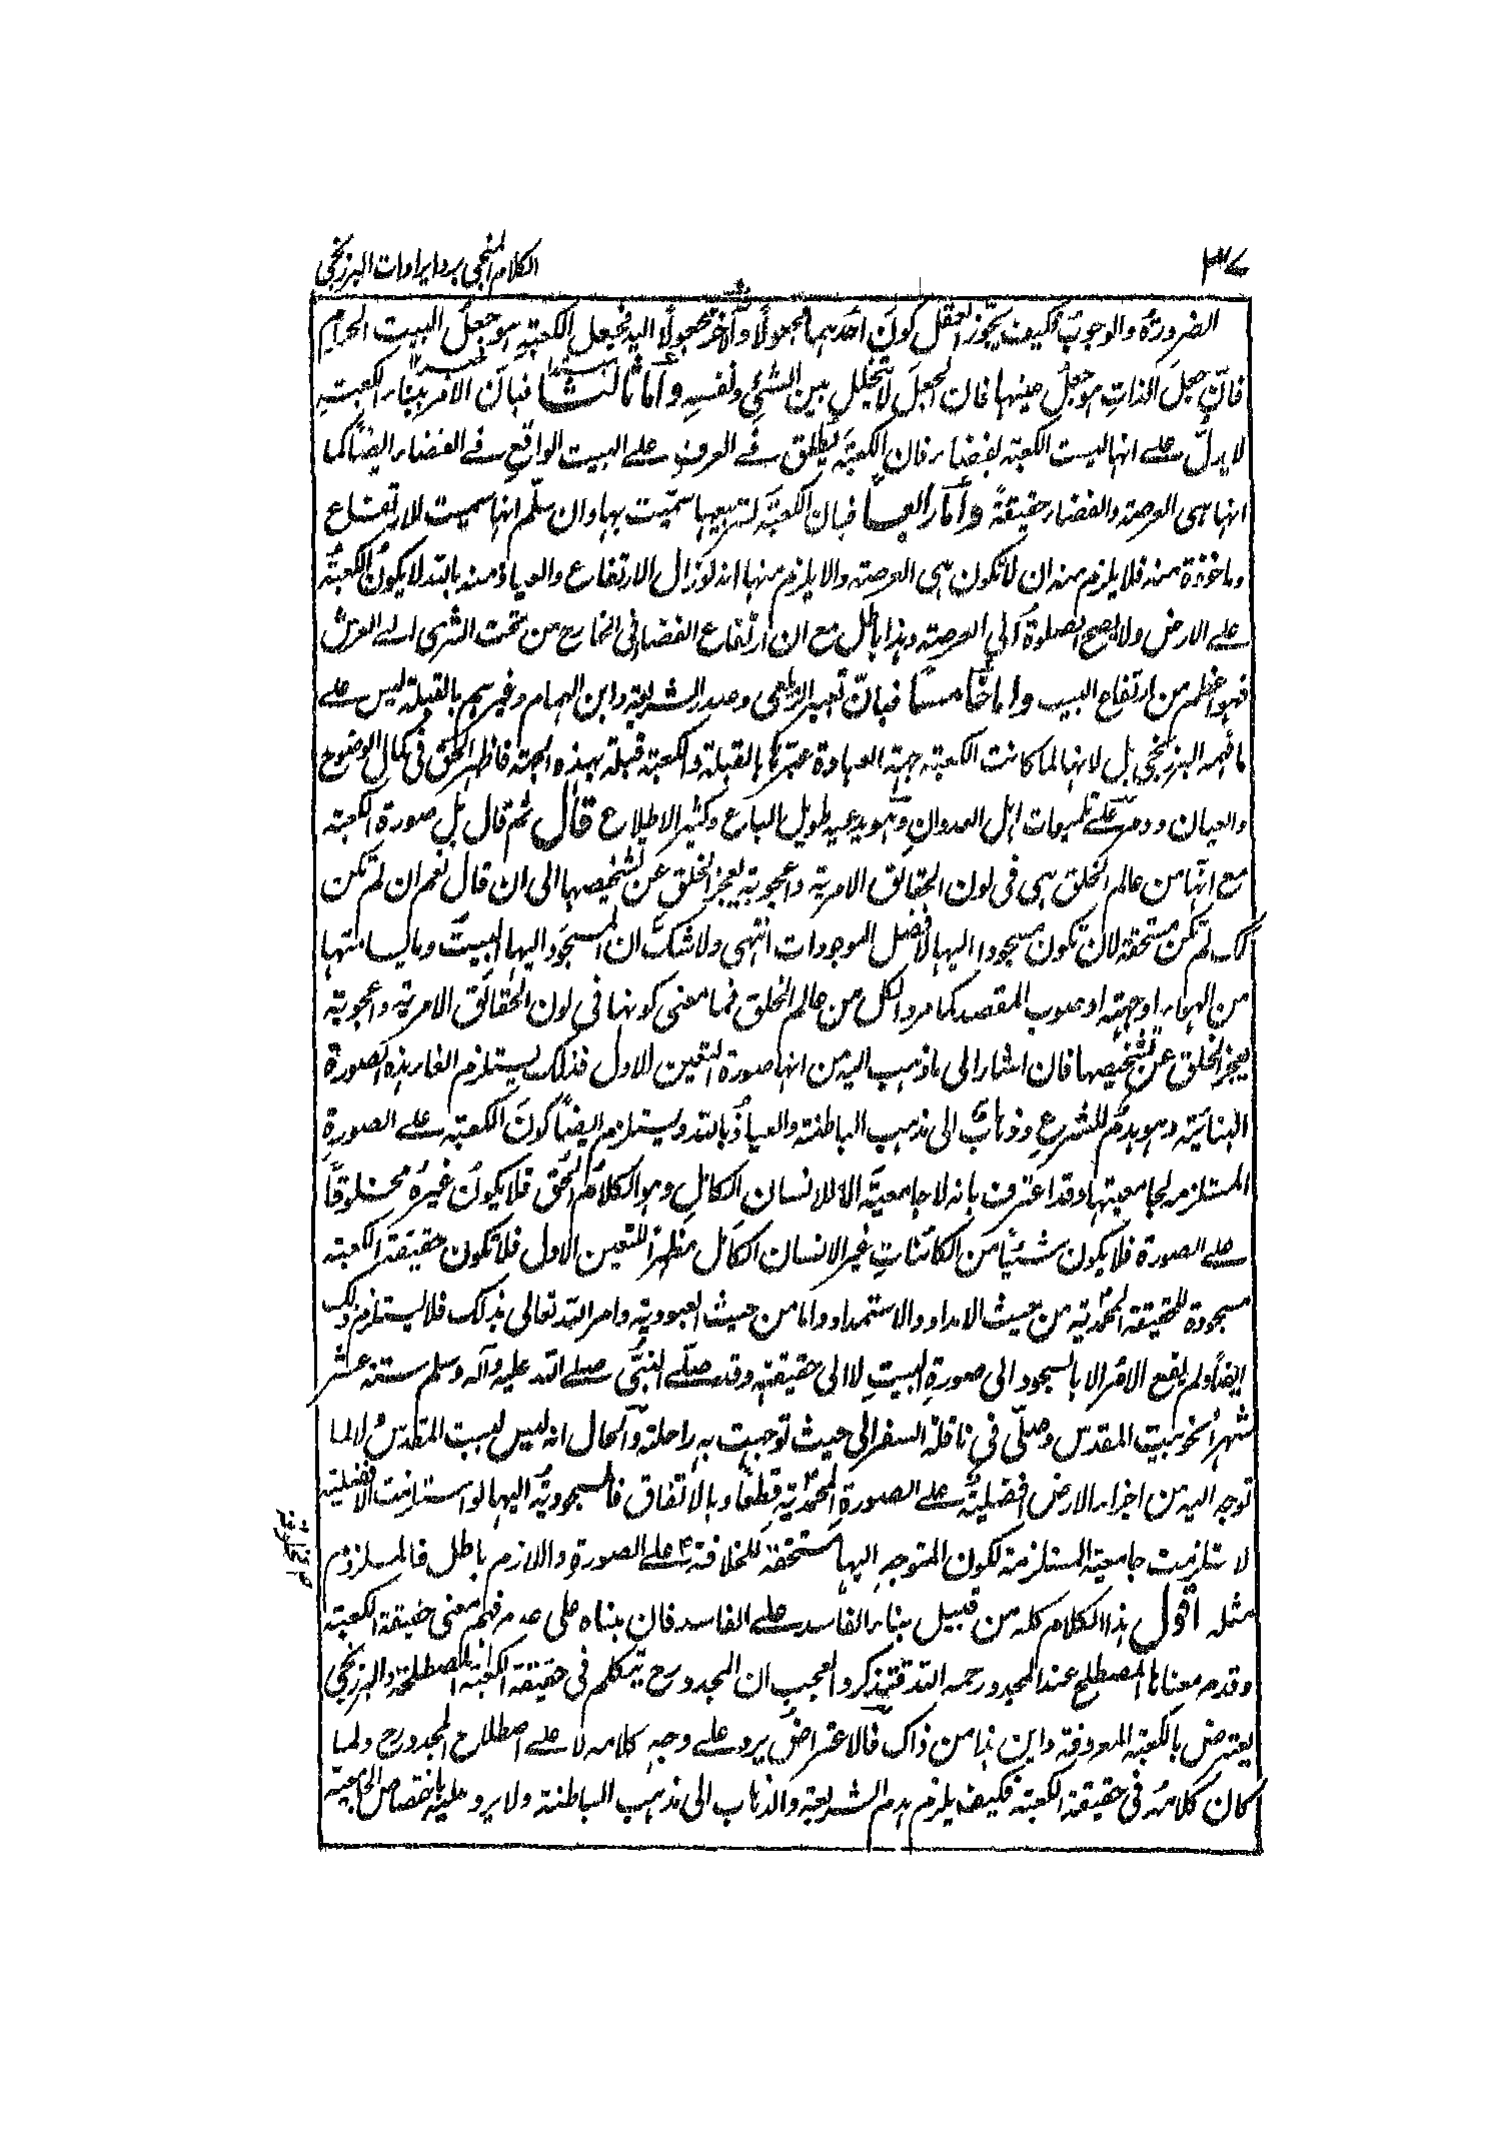 ٣٧
الكلام المنجي برد ايرادات البرزنجي
الضرورة والوجوب كيف يجوز العقل كون احدهما مجعولا والآخر مجعولا اليه فجعل الكعبة هو جعل البيت الحرام
فان جعل الذات هو جعل عينها فان الجعل لا يتخلل بين الشئ ونفسه واما ثالثا فبان الامر ببناء الكعبة
لا يدل على انها ليست الكعبة بفضاء فان الكعبة يطلق في العرف على البيت الواقع في الفضاء ايضا كما
انها هى العرصة والفضاء حقيقة واما رابعا فبان الكعبة لتربيعها سميت بها وان سلم انها سميت للارتفاع
وماخوذة منه فلا يلزم منه ان لا تكون هى العرصة والا يلزم منها انه لو زال الارتفاع والعياذ منه بالله لا يكون الكعبة
على الارض ولا يصح الصلوة الى العرصة وهذا باطل مع ان ارتفاع الفضا فى الخارج من تحت الثرى الى العرش
فهو اعظم من ارتفاع البيت واما خامسا فبان تعبير الزيلعى وصدر الشريعة وابن الهمام وغيرهم بالقبلة ليس على
ما فهمه البرزنجى بل لانها لما كانت الكعبة جهة العبادة عبر بالقبلة والكعبة قبلة بهذه الجهة فاظهر الحق فى كمال الوضوح
والعيان ودمر على تلبيسات اهل العدوان وهو يدعيه طويل الباع وكثير الاطلاع قال ثم قال بل صورة الكعبة
مع انها من عالم الخلق هى فى لون الحقائق الامرية واعجوبة يعجز الخلق عن تشخيصها الى ان قال نعم ان لم تكن
كك لم تكن مستحقة لان تكون مسجودا اليها لافضل الموجودات انتهى ولا شك ان المسجود اليها البيت وما يسامتها
من الهواء او جهته او صوب المقصد كما مر والكل من عالم الخلق فما معنى كونها فى لون الحقائق الامرية واعجوبة
يعجز الخلق عن تشخيصها فان اشار الى ما ذهب اليه من انها صورة التعين الاول فذلك يستلزم الغاء هذه الصورة
البنائية وهو هدم للشرع وذهاب الى مذهب الباطنة والعياذ بالله ويستلزم ايضا كون الكعبة على الصورة
المستلزمة لجامعيتها وقد اعترف بانه لا جامعية الا للانسان الكامل وهو الكلام الحق فلا يكون غيره مخلوقا
على الصورة فلا يكون شيئا من الكائنات غير الانسان الكامل مظهرا للتعين الاول فلا تكون حقيقة الكعبة
مسجودة للحقيقة المحمدية من حيث الامداد والاستمداد واما من حيث العبودية وامر الله تعالى بذلك فلا يستلزم ذلك
ايضا ولم يقع الامر الا بالسجود الى صورة البيت لا الى حقيقته وقد صلى النبى صلى الله عليه وآله وسلم ستة عشر
شهرا نحو بيت المقدس وصلى فى نافلة السفر الى حيث توجهت به راحلته والحال انه ليس لبيت المقدس ولا لما
توجه اليه من اجزاء الارض افضلية على الصورة المحمدية قطعا وبالاتفاق فالمسجودية اليها لو استلزمت الافضلية
لاستلزمت جامعية المستلزمة لكون المتوجه اليها مستحقة للخلافة على الصورة واللازم باطل فالملزوم
مثله اقول هذا الكلام كله من قبيل بناء الفاسد على الفاسد فان بناه على عدم فهم معنى حقيقة الكعبة
وقد مر معناها المصطلح عند المجدد رحمه الله فتذكر والعجب ان المجدد رح يتكلم فى حقيقة الكعبة المصطلحة والبرزنجى
يعترض بالكعبة المعروفة واين هذا من ذاك فالاعتراض يرد على وجه كلامه لا على اصطلاح المجدد رح ولما
كان كلامه فى حقيقة الكعبة فكيف يلزم هدم الشريعة والذهاب الى مذهب الباطنة ولا يرد عليه باختصاص الجامعية